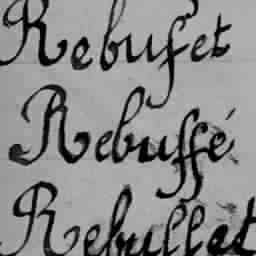 Rebufet
Rebuffé
Rebuffet